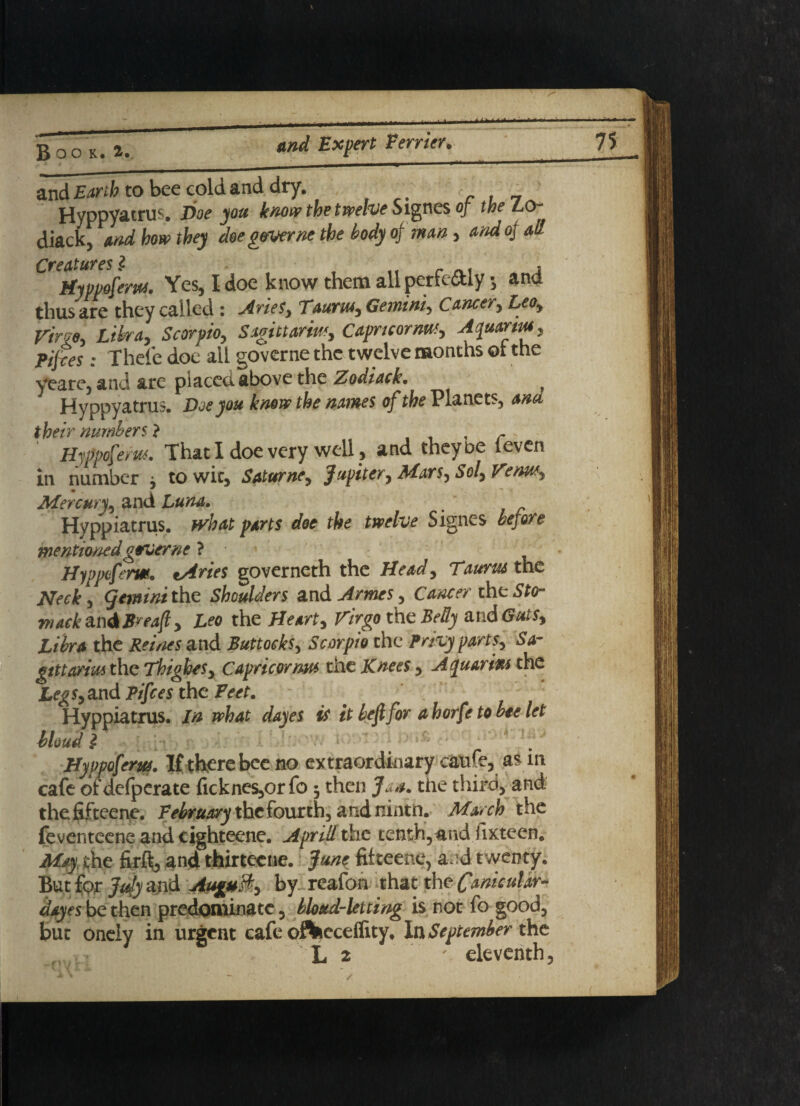 Book. 2. and Expert Ferrier. 75
and Earth to bee cold and dry.
Hyppyatrus. Doe you know the twelve Signes of the Zo-
diack, and how they doe governe the body of man, and of all
Creatures?
Hyppoſerus. Yes, I doe know them all perfectly; and
thus are they called: Aries, Taurus, Gemini, Cancer, Leo,
Virgo, Libra, Scorpio, Sagittarius, Capricornus, Aquarius,
Piſces: Theſe doe all governe the twelve months of the
yeare, and are placed above the Zodiack.
Hyppyatrus. Doe you know the names of the Planets, and
their numbers?
Hyppoſerus. That I doe very well, and they be ſeven
in number; to wit, Saturne, Jupiter, Mars, Sol, Venus,
Mercury, and Luna.
Hyppiatrus. What parts doe the twelve Signes before
mentioned governe?
Hyppoſerus. Aries governeth the Head, Taurus the
Neck, Gemini the Shoulders and Armes, Cancer the Sto-
mack and Breaſt, Leo the Heart, Virgo the Belly and Guts,
Libra the Reines and Buttocks, Scorpio the Privy parts, Sa-
gittarius the Thighes, Capricornus the Knees, Aquarius the
Legs, and Piſces the Feet.
Hyppiatrus. In what dayes is it beſt for a horſe to bee let
bloud?
Hyppoſerus. If there bee no extraordinary cauſe, as in
caſe of deſperate ſickneſ,or ſo; then Jan. the third, and
the fifteene. February the fourth, and ninth. March the
ſeventeene and eighteene. Aprill the tenth, and ſixteen.
May, the firſt, and thirteene. June fifteene, and twenty.
But for July and Auguſt, by reaſon that the Canicular-
dayes be then predominate, bloud-letting is not ſo good,
but onely in urgent caſe of neceſſity. In September the
L 2 eleventh,